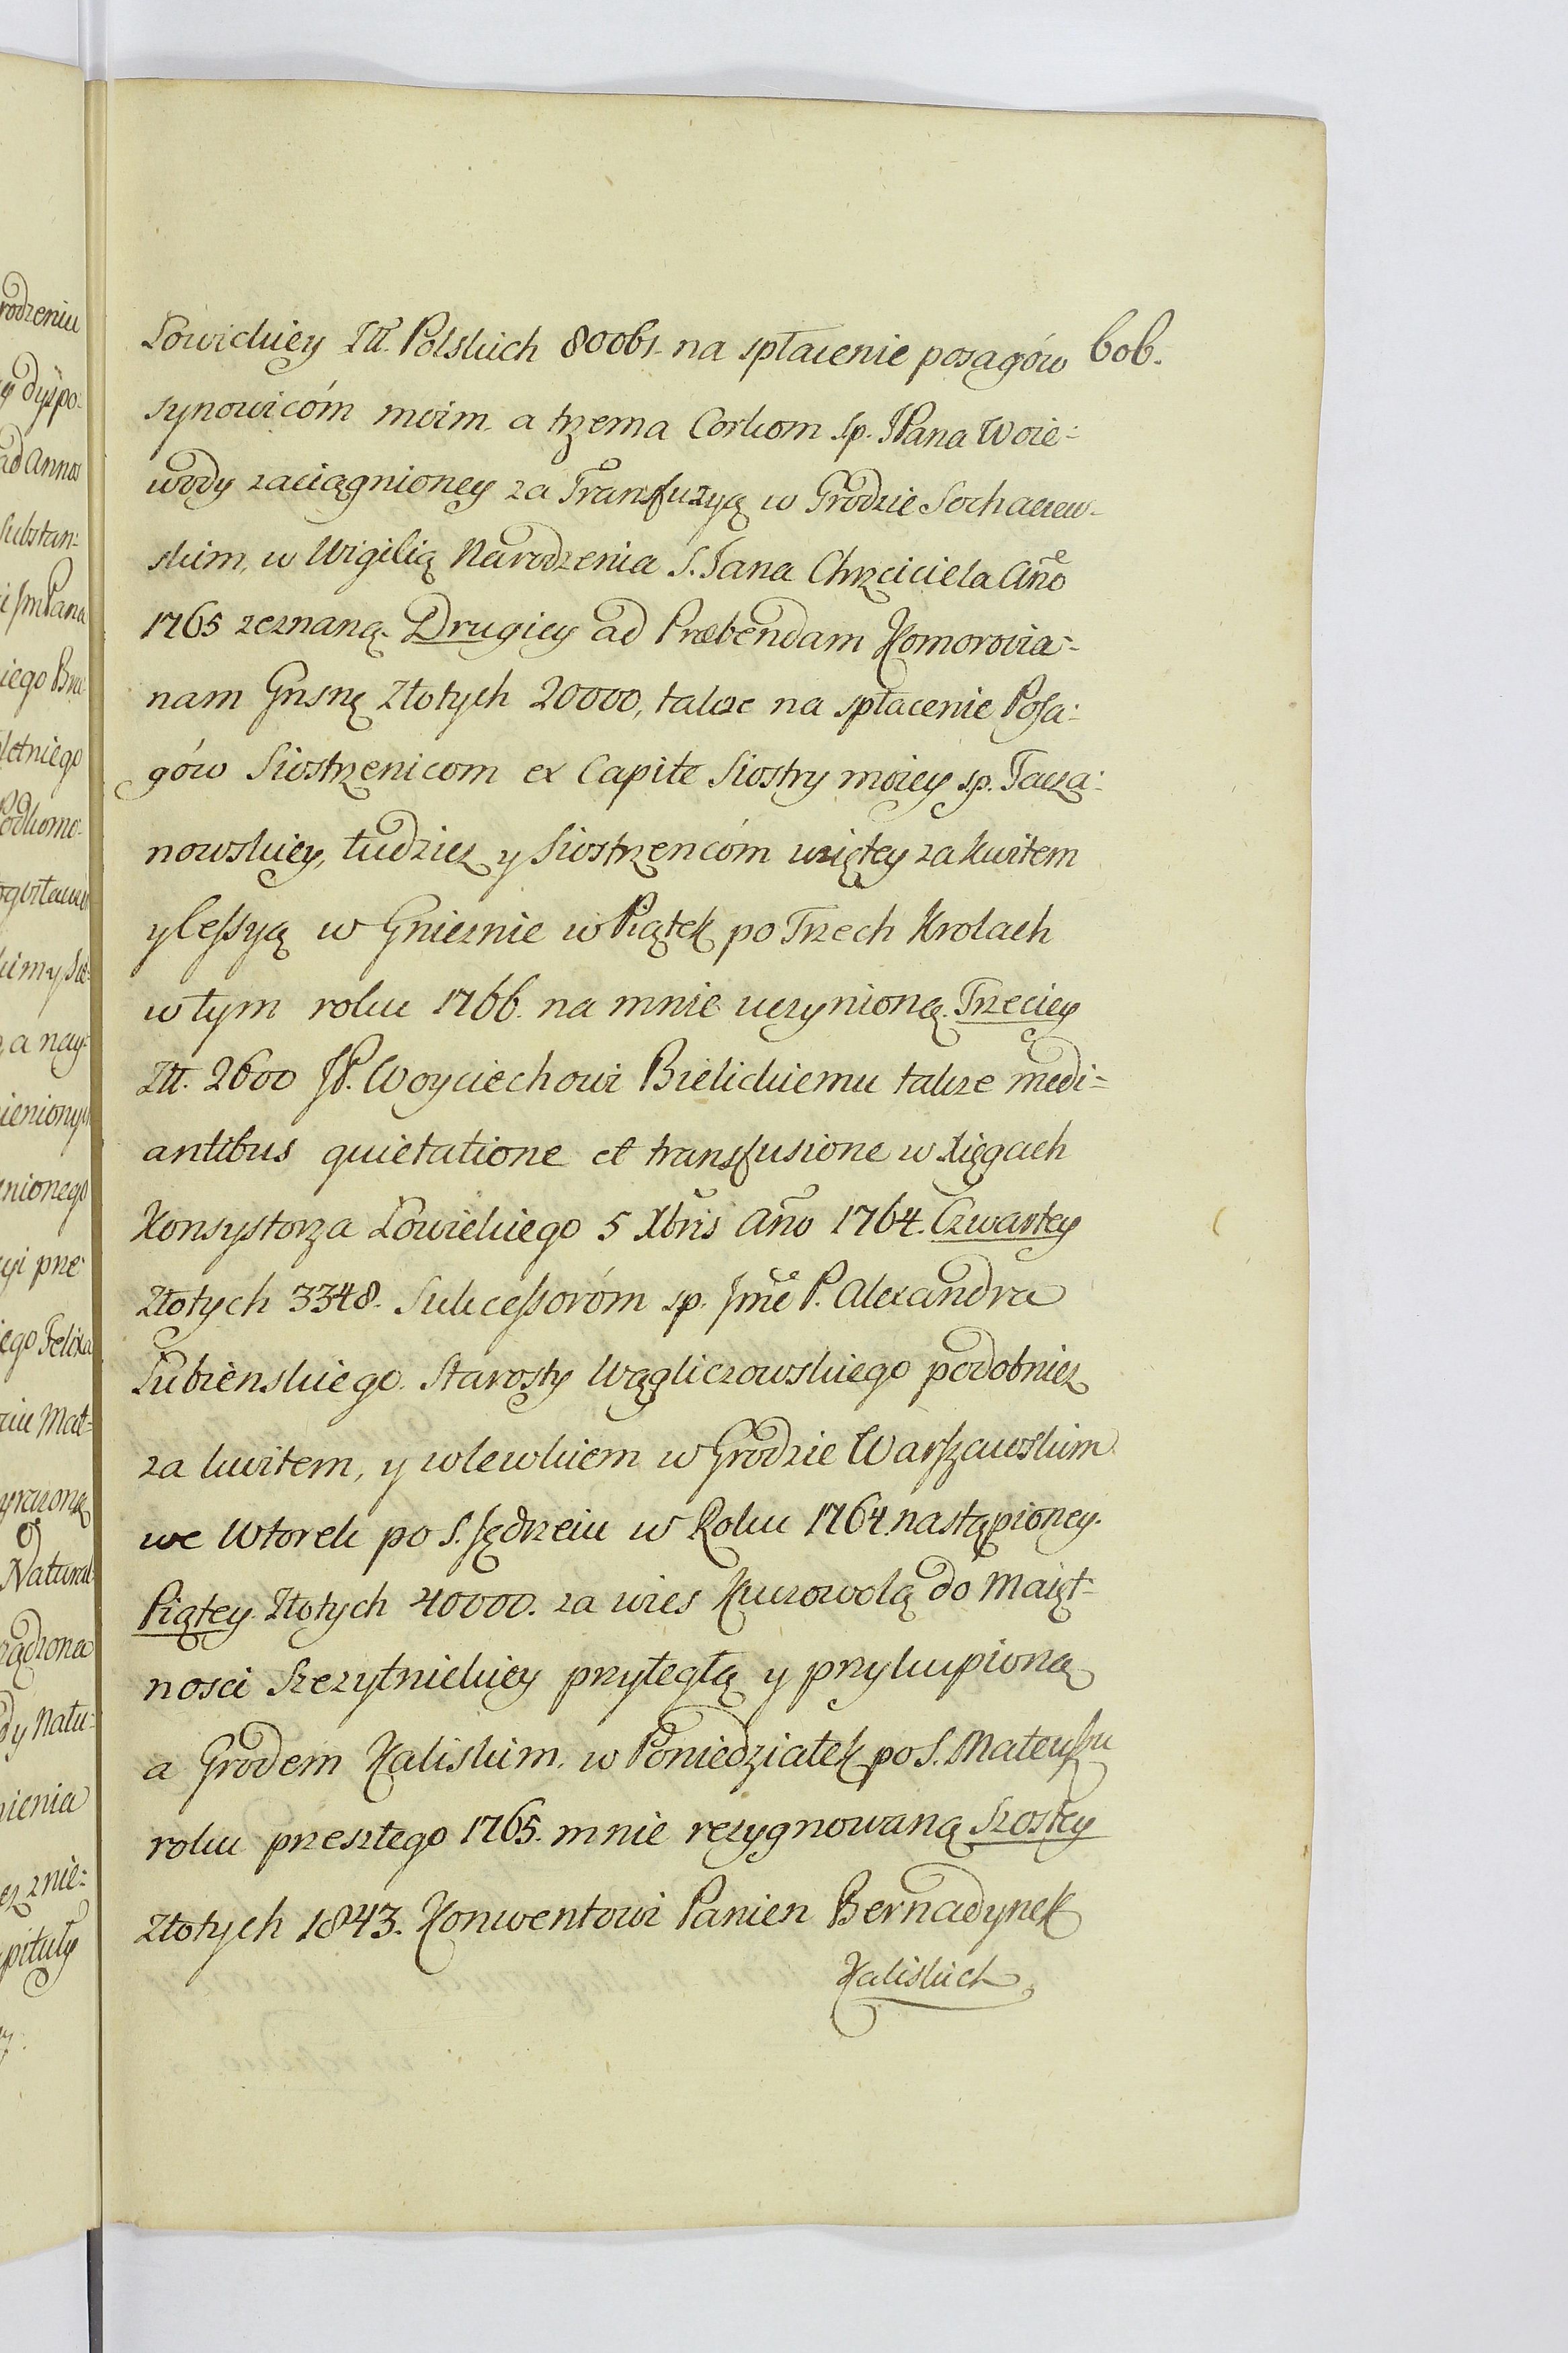 Łowickiey Złł. Polskich 80061. na spłacenie posagów 606.
synowicóm moim. a trzema Corkom sp. JPana Woie=
wody zaciągnioney za Transfuzyą w Grodzie Sochaczew-
skim, w Wigilią Narodzenia S. Jana Chrzciciela Año
1765 zeznaną. Drugiey ad Præbendam Komorovia=
nam Gnsną Złotych 20000, także na spłacenie Posa=
gów Siostrzenicom ex Capite Siostry moiey sp. Tacza=
nowskiey, tudziez y Siostrzęncóm wziętey za kwitem
y Cessyą w Gnieznie w Piątek po Trzech Krolach
w tym roku 1766. na mnie uczynioną. Trzeciey
Złł. 2600 JP. Woyciechowi Bielickiemu także medi=
antibus quietatione et transfusione w Xięgach
Konsystorza Łowickiego 5 Xbris Año 1764. Czwartey
Złotych 3348. Sukcessoróm sp. Jmē P. Alexandra
Łubienskiego. Starosty Wągliczowskiego podobniez
za kwitem, y wlewkiem w Grodzie Warszawskim
we Wtorek po S. Jędrzeiu w Roku 1764. nastąpioney.
Piątey. Złotych 40000. za wies Kurowolą do Maięt=
nosci Szczytnickiey przyległą y przykupioną
a Grodem Kaliskim. w Poniedziałek po S. Mateuszu
roku przeszłego 1765. mnie rezygnowaną Szostey
Złotych 1843. Konwentowi Panien Bernadynek
Kaliskich
rodzeniu
dyspo=
ad Annos
Substan=
i JmPana
iego Bra
letniego
, a nay=
ienionych
nionego
iego Felixa
Natural
ządzona
dy Natu=
nienia
znie=
pituły